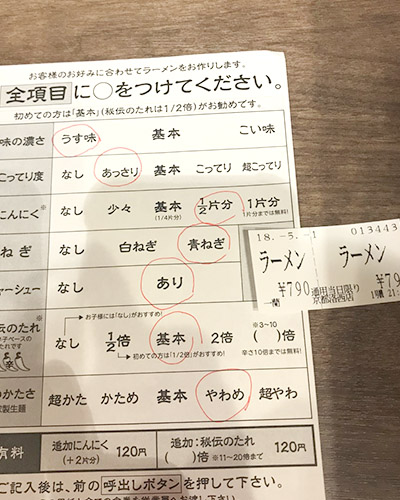 お客様のお好みに合わせてラーメンをお作りします。
全項目に○をつけてください。
初めての方は「基本」(秘伝のたれは1/2倍)がお勧めです。
味の濃さ うす味 基本 こい味
こってり度 なし あっさり 基本 こってり 超こってり
にんにく※ なし 少々 基本 1/2片分 1片分
(1/4片分) 1片分までは無料!
ねぎ なし 白ねぎ 青ねぎ
ャーシュー なし あり
お子様には「なし」がおすすめ!
伝のたれ なし 1/2倍 基本 2倍 ( )倍
※3~10
初めての方は「1/2倍」がおすすめ! 辛さ10倍までは無料!
のかたさ 超かた かため 基本 やわめ 超やわ
製生麺
有料 追加にんにく 120円 追加:秘伝のたれ 120円
(+2片分) ( )倍 ※11~20倍まで
ご記入後は、前の呼出しボタンを押して下さい。
18.-5.-1 013443
ラーメン ラーメン
¥790 通用当日限り ¥79
一蘭 京都洛西店